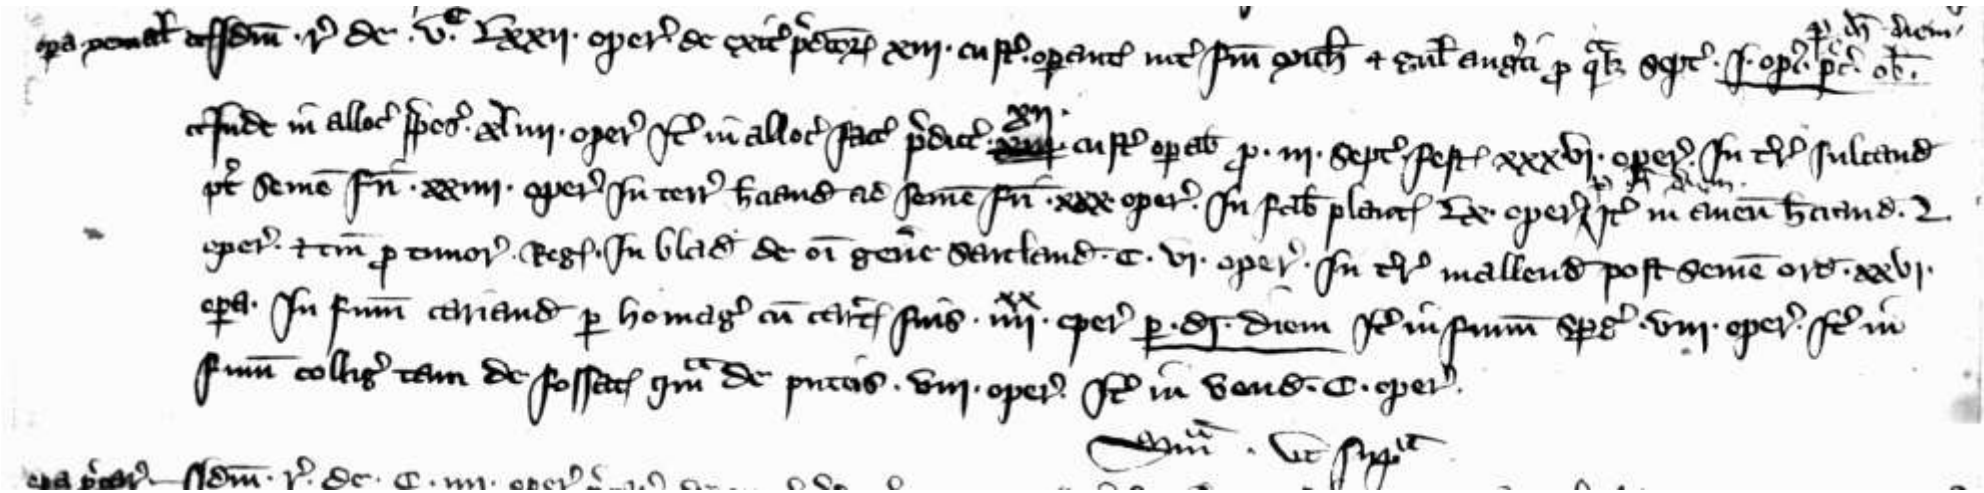 opa yemal Idm . r. de . v.C Lxxii . oper. de exit pdcor xiii . custr. operant int fm mich & gul augti p qalt sept . i . oper. pc. ob. p di diem
Inde in alloc ppos. xliiii . oper. It in alloc fact pdict xii custr operab p . iii . sept. fest xxxvi . oper. In tr. sulcand
pt seme fri . xxiiii . oper. In terr hciand ad seme fri . xxx oper. In fab plant Lx . oper. It in auen hciand . L p di diem
oper. & tm p timor. Reg. In blad de oi gene sarcland . C . vi . oper. In tr. mallend post seme ord . xxvi .
opa . In fimu cariand p homag. cu carect suis . iiii xx . oper. p . di . diem It in fimu spgd . viii . oper. It in
fimu collig. tam de fossat qma de puteis . viii . oper. It in vend . C . oper.
Sma . vt supa
opa Idm . r. de . C . iiii . oper.